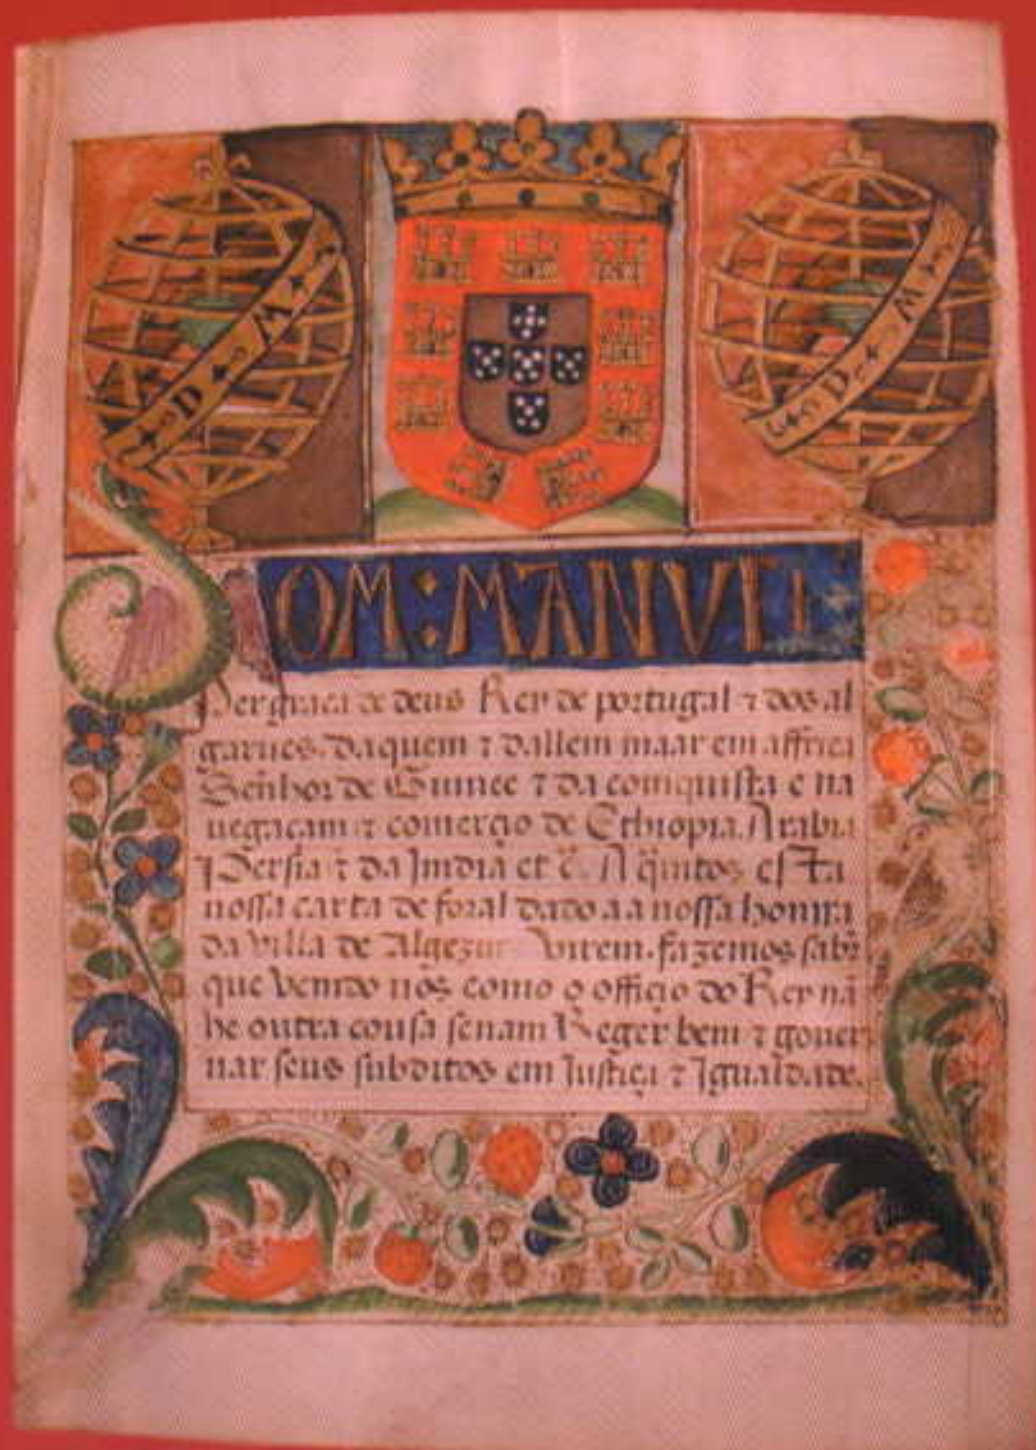 D M
D M
DOM : MANVEL
Per graça de deus Rey de portugal ⁊ dos al
garues. daquem ⁊ dallem maar em affrica
Senhor de Guinee ⁊ da comquista e na
uegaçam ⁊ comerçio de Ethiopia. Arabia
Persia ⁊ da Imdia et c̃. A q̃mtos esta
nossa carta de foral dado aa nossa homrra
da villa de Algezur virem. fazemos sabr̃
que vemdo nos como o offiçio do Rey nã
he outra cousa senam Reger bem ⁊ gouer
nar seus subditos em Justiça ⁊ Igualdade.